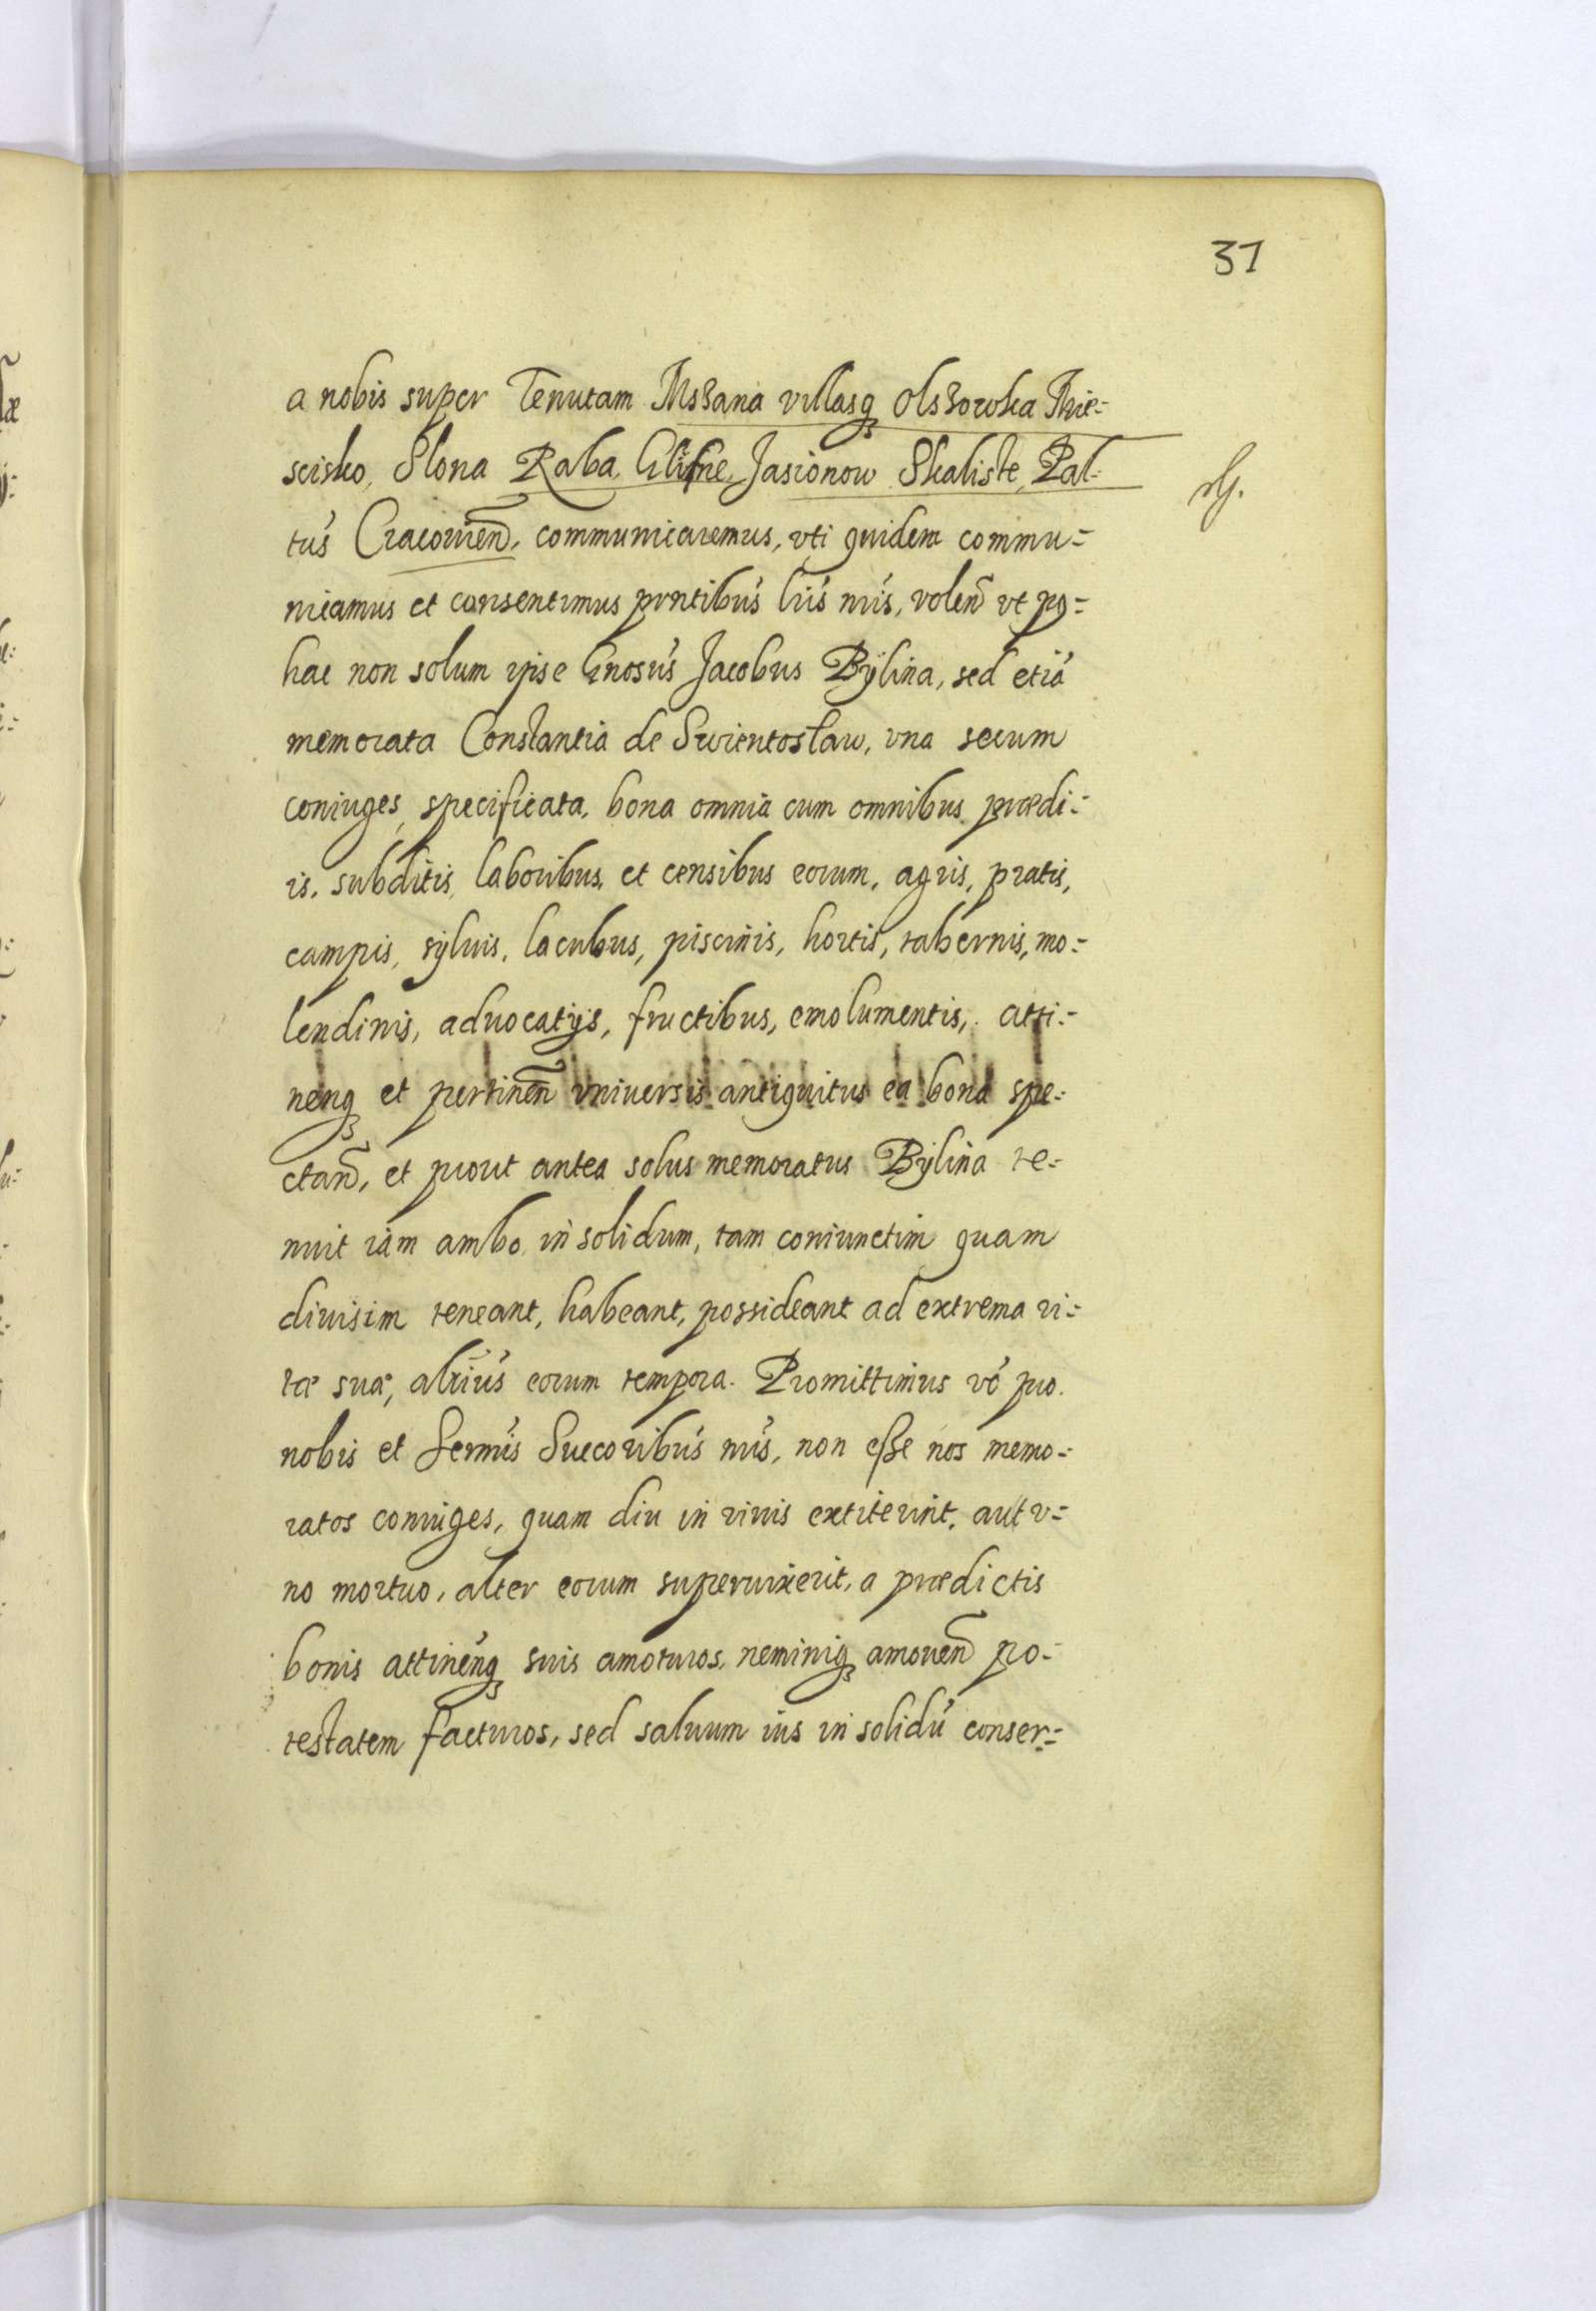 31
a nobis super Tenutam Mszana villasq Olszowka Mie=
scisko, Slona Raba, Glisne, Jasionow Skaliste, Pal=
tus Cracovien, communicaremus, vti quidem commu=
nicamus et consentimus pntibus lris nris, volen vt po=
hac non solum ipse Gnosus Jacobus Bÿlina, sed etiá
memorata Constantia de Swientosław, vna secum
coniuges, specificata, bona omnia cum omnibus prædi=
is, subditis, laboribus, et censibus eorum, agris, pratis,
campis, sÿluis, lacubus, piscinis, hortis, tabernis, mo=
lendinis, aduocatijs, fructibus, emolumentis, atti=
nenq et pertinen vniuersis antiquitus ea bona spe=
ctan, et prout antea solus memoratus Bÿlina te=
nuit iam ambo in solidum, tam coniunctim quam
diuisim teneant, habeant, possideant ad extrema vi=
tæ suæ, altrius eorum tempora. Promittimus vó pro
nobis et Sermis Succoribus nris, non esse nos memo=
ratos coniuges, quam diu in viuis extiterint, aut v=
no mortuo, alter eorum superuixerit, a prædictis
bonis attinenq suis amoturos, neminiq amouen po=
testatem facturos, sed saluum ius in solidú conser=